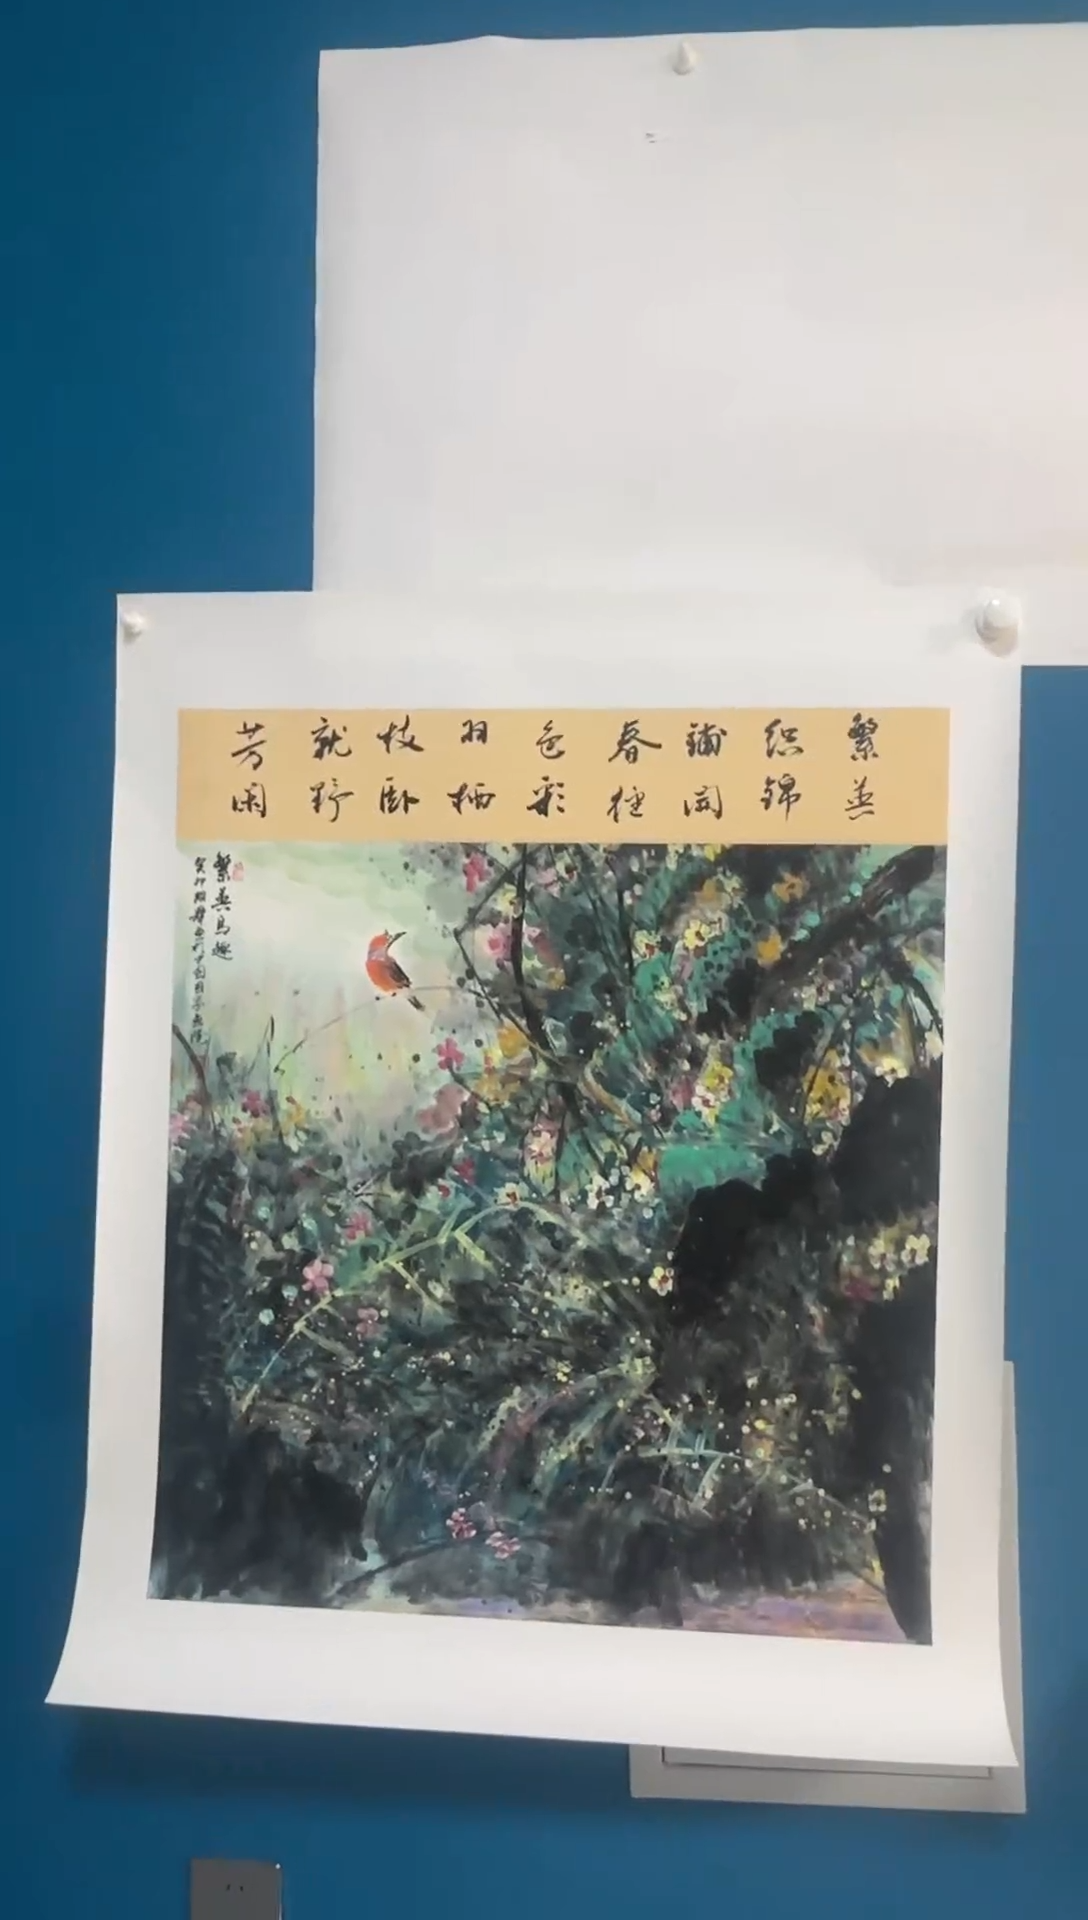 繁英
织锦
铺開
春径
色彩
羽栖
枝卧
就野
芳闲
繁英鸟趣
癸卯
中国